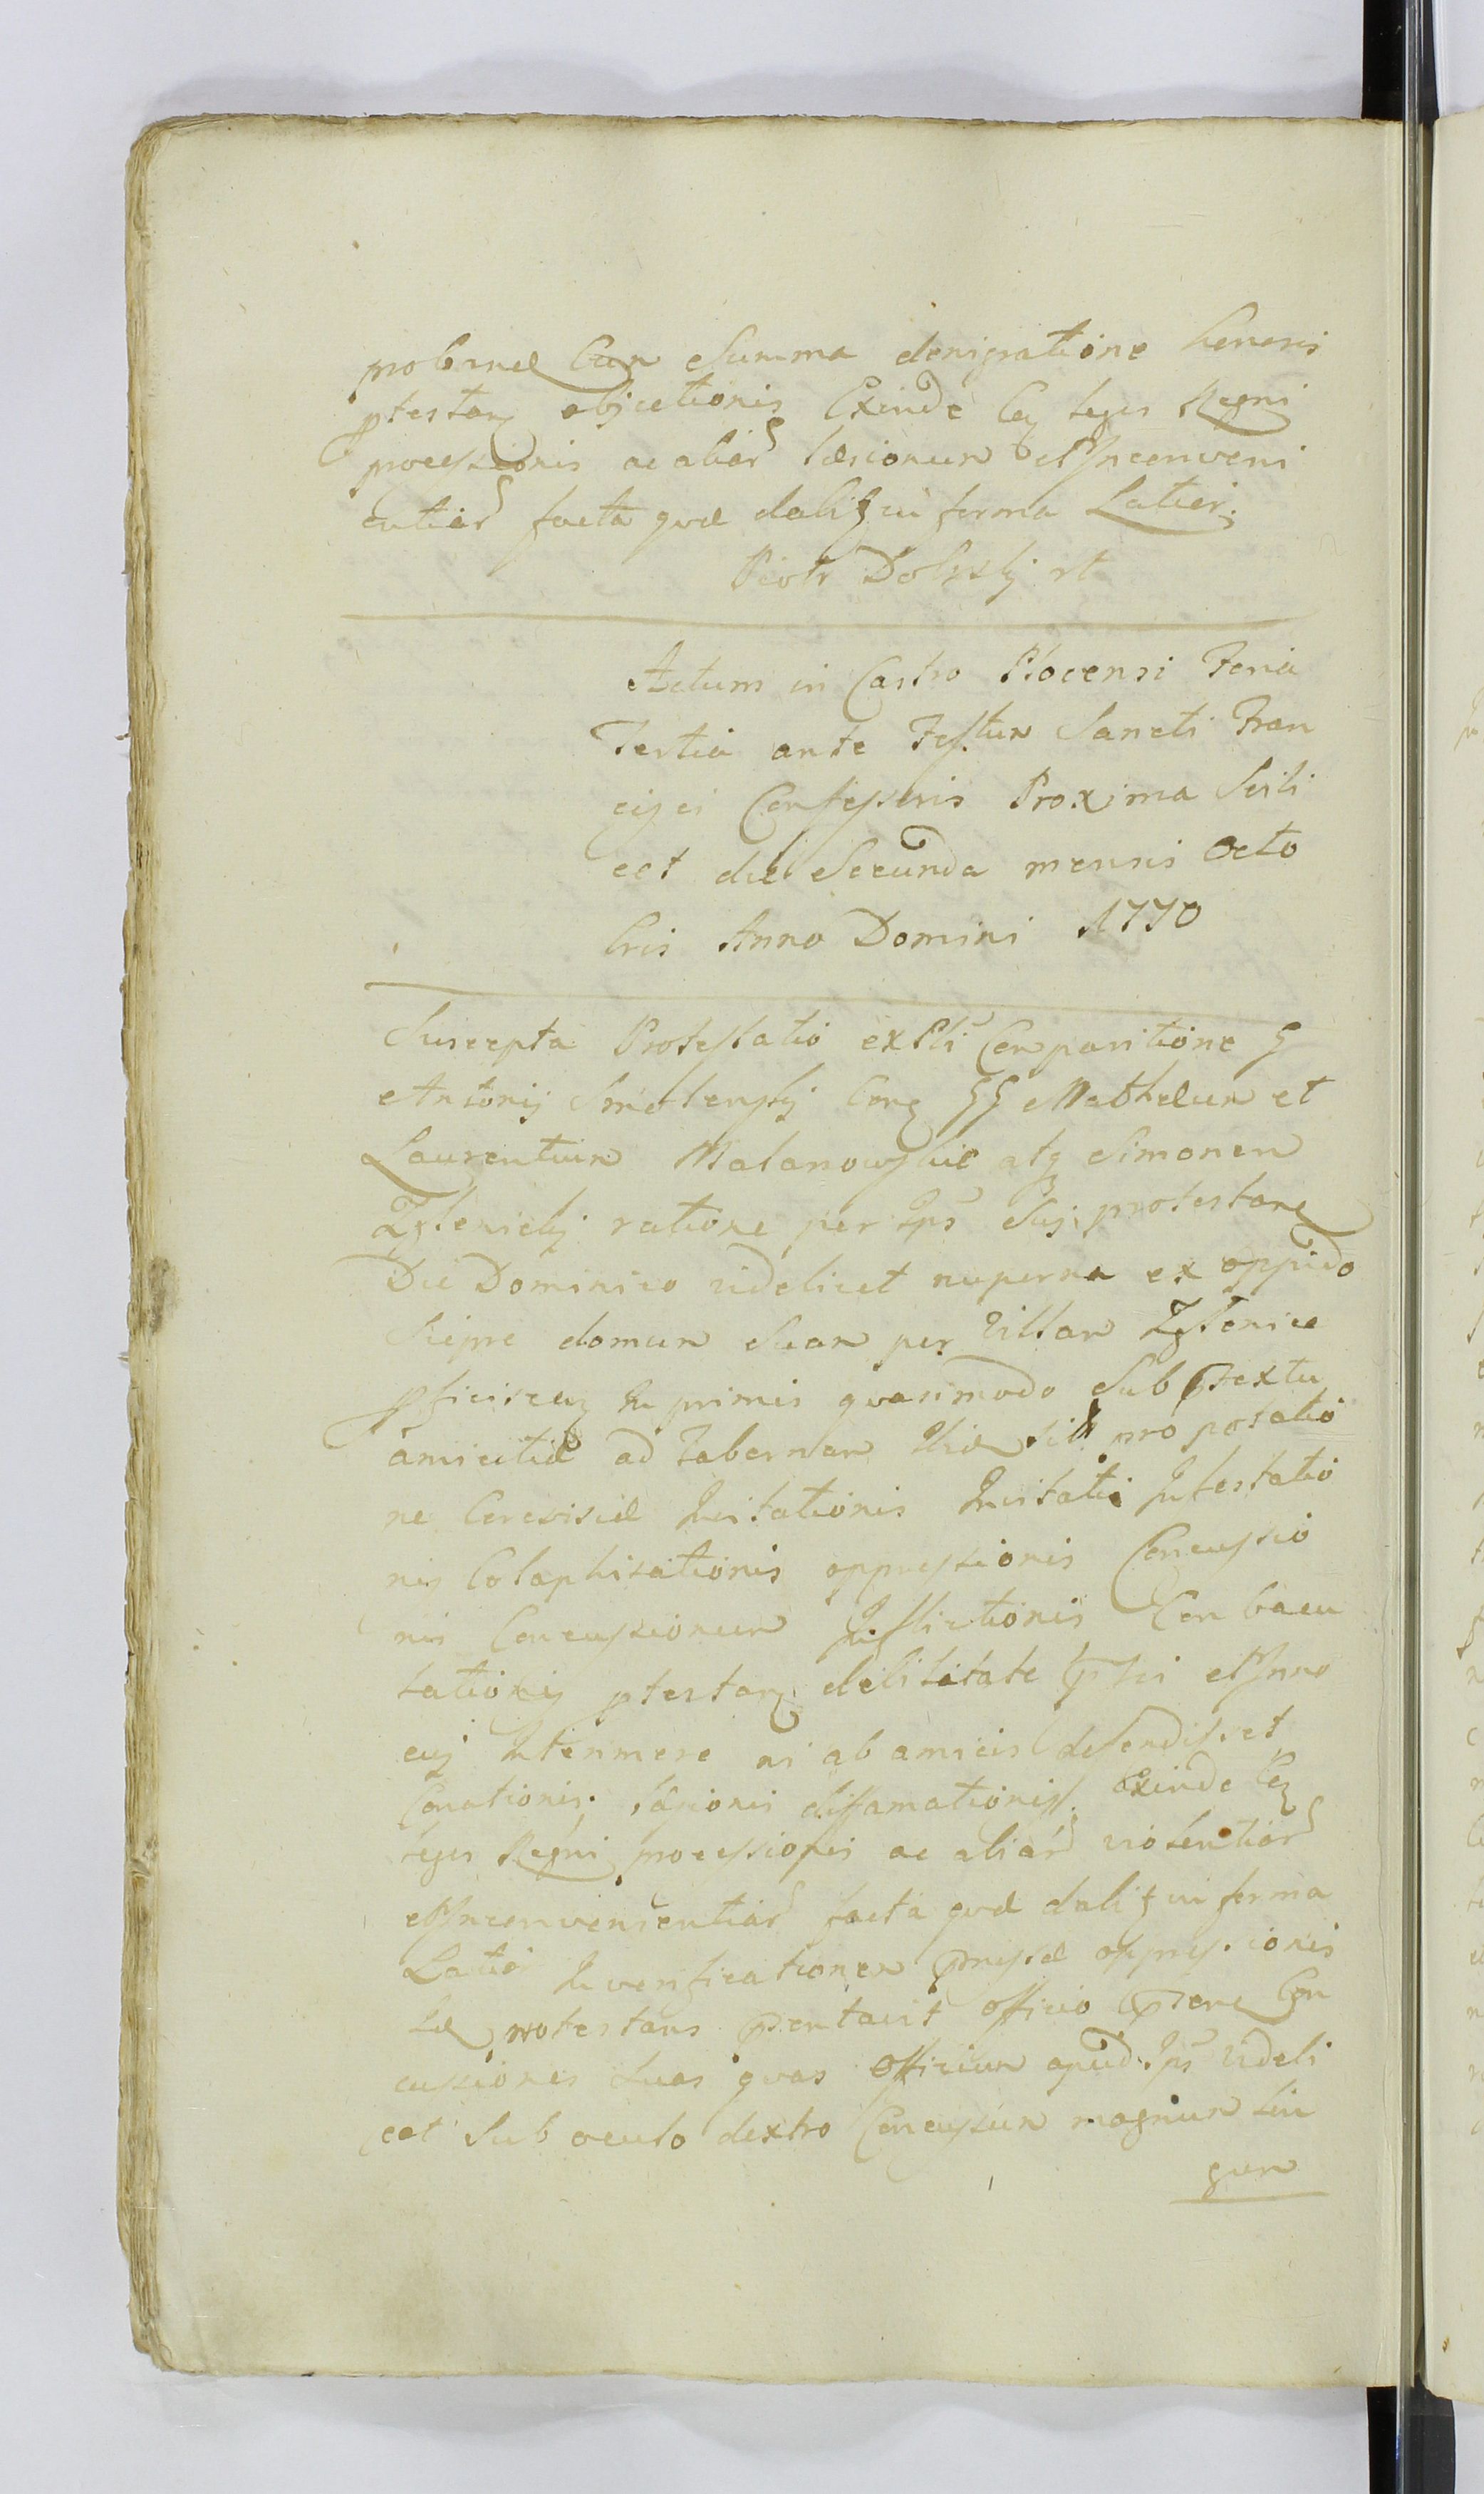 probruel Cum Summa denigratione honoris
ptestan objectionis Exinde Con leges Regni
processionis ac aliar laesionum et Inconveni
entiar facta quae dali in forma Latiori
Piotr Dobrski
Actum in Castro Plocensi Feria
Tertia ante Festum Sancti Fran
cisci Confessoris Proxima Scili
cet die Secunda mensis Octo
bris Anno Domini 1770
Suscepta Protestatio ex Pli Comparitione G
Antonij Smolenskj Con GG Mathaeum et
Laurentium Malanowskie atq Simonem
Zglenickj ratione per Ips Suj protestan
Die Dominico videlicet nuperna ex oppido
Sierpc domum Suam per Villam Zglenice
pficiscen In primis quasimodo Sub ptextu
amicitiae ad tabernam pro potatio
ne Cerevisiae Incitationis Incitati Intestatio
nis Colaphisationis oppressionis Concussio
nis Concussionum Inflictionis Con bacu
lationis ptestan debilitate et Inno
cuj Interimere ni ab amicis defendisset
Conationis laesionis diffamationis Exinde Con
leges Regni processionis ac aliar violentiar
et Inconvenientiar facta quae dali in forma
Latiori In verificationem pmissae oppressionis
Se protestans pentavit officio pteren Con
cussiones duas quas Officium apud Ips videli
cet Sub oculo dextro Concussum magnum Lin
gum